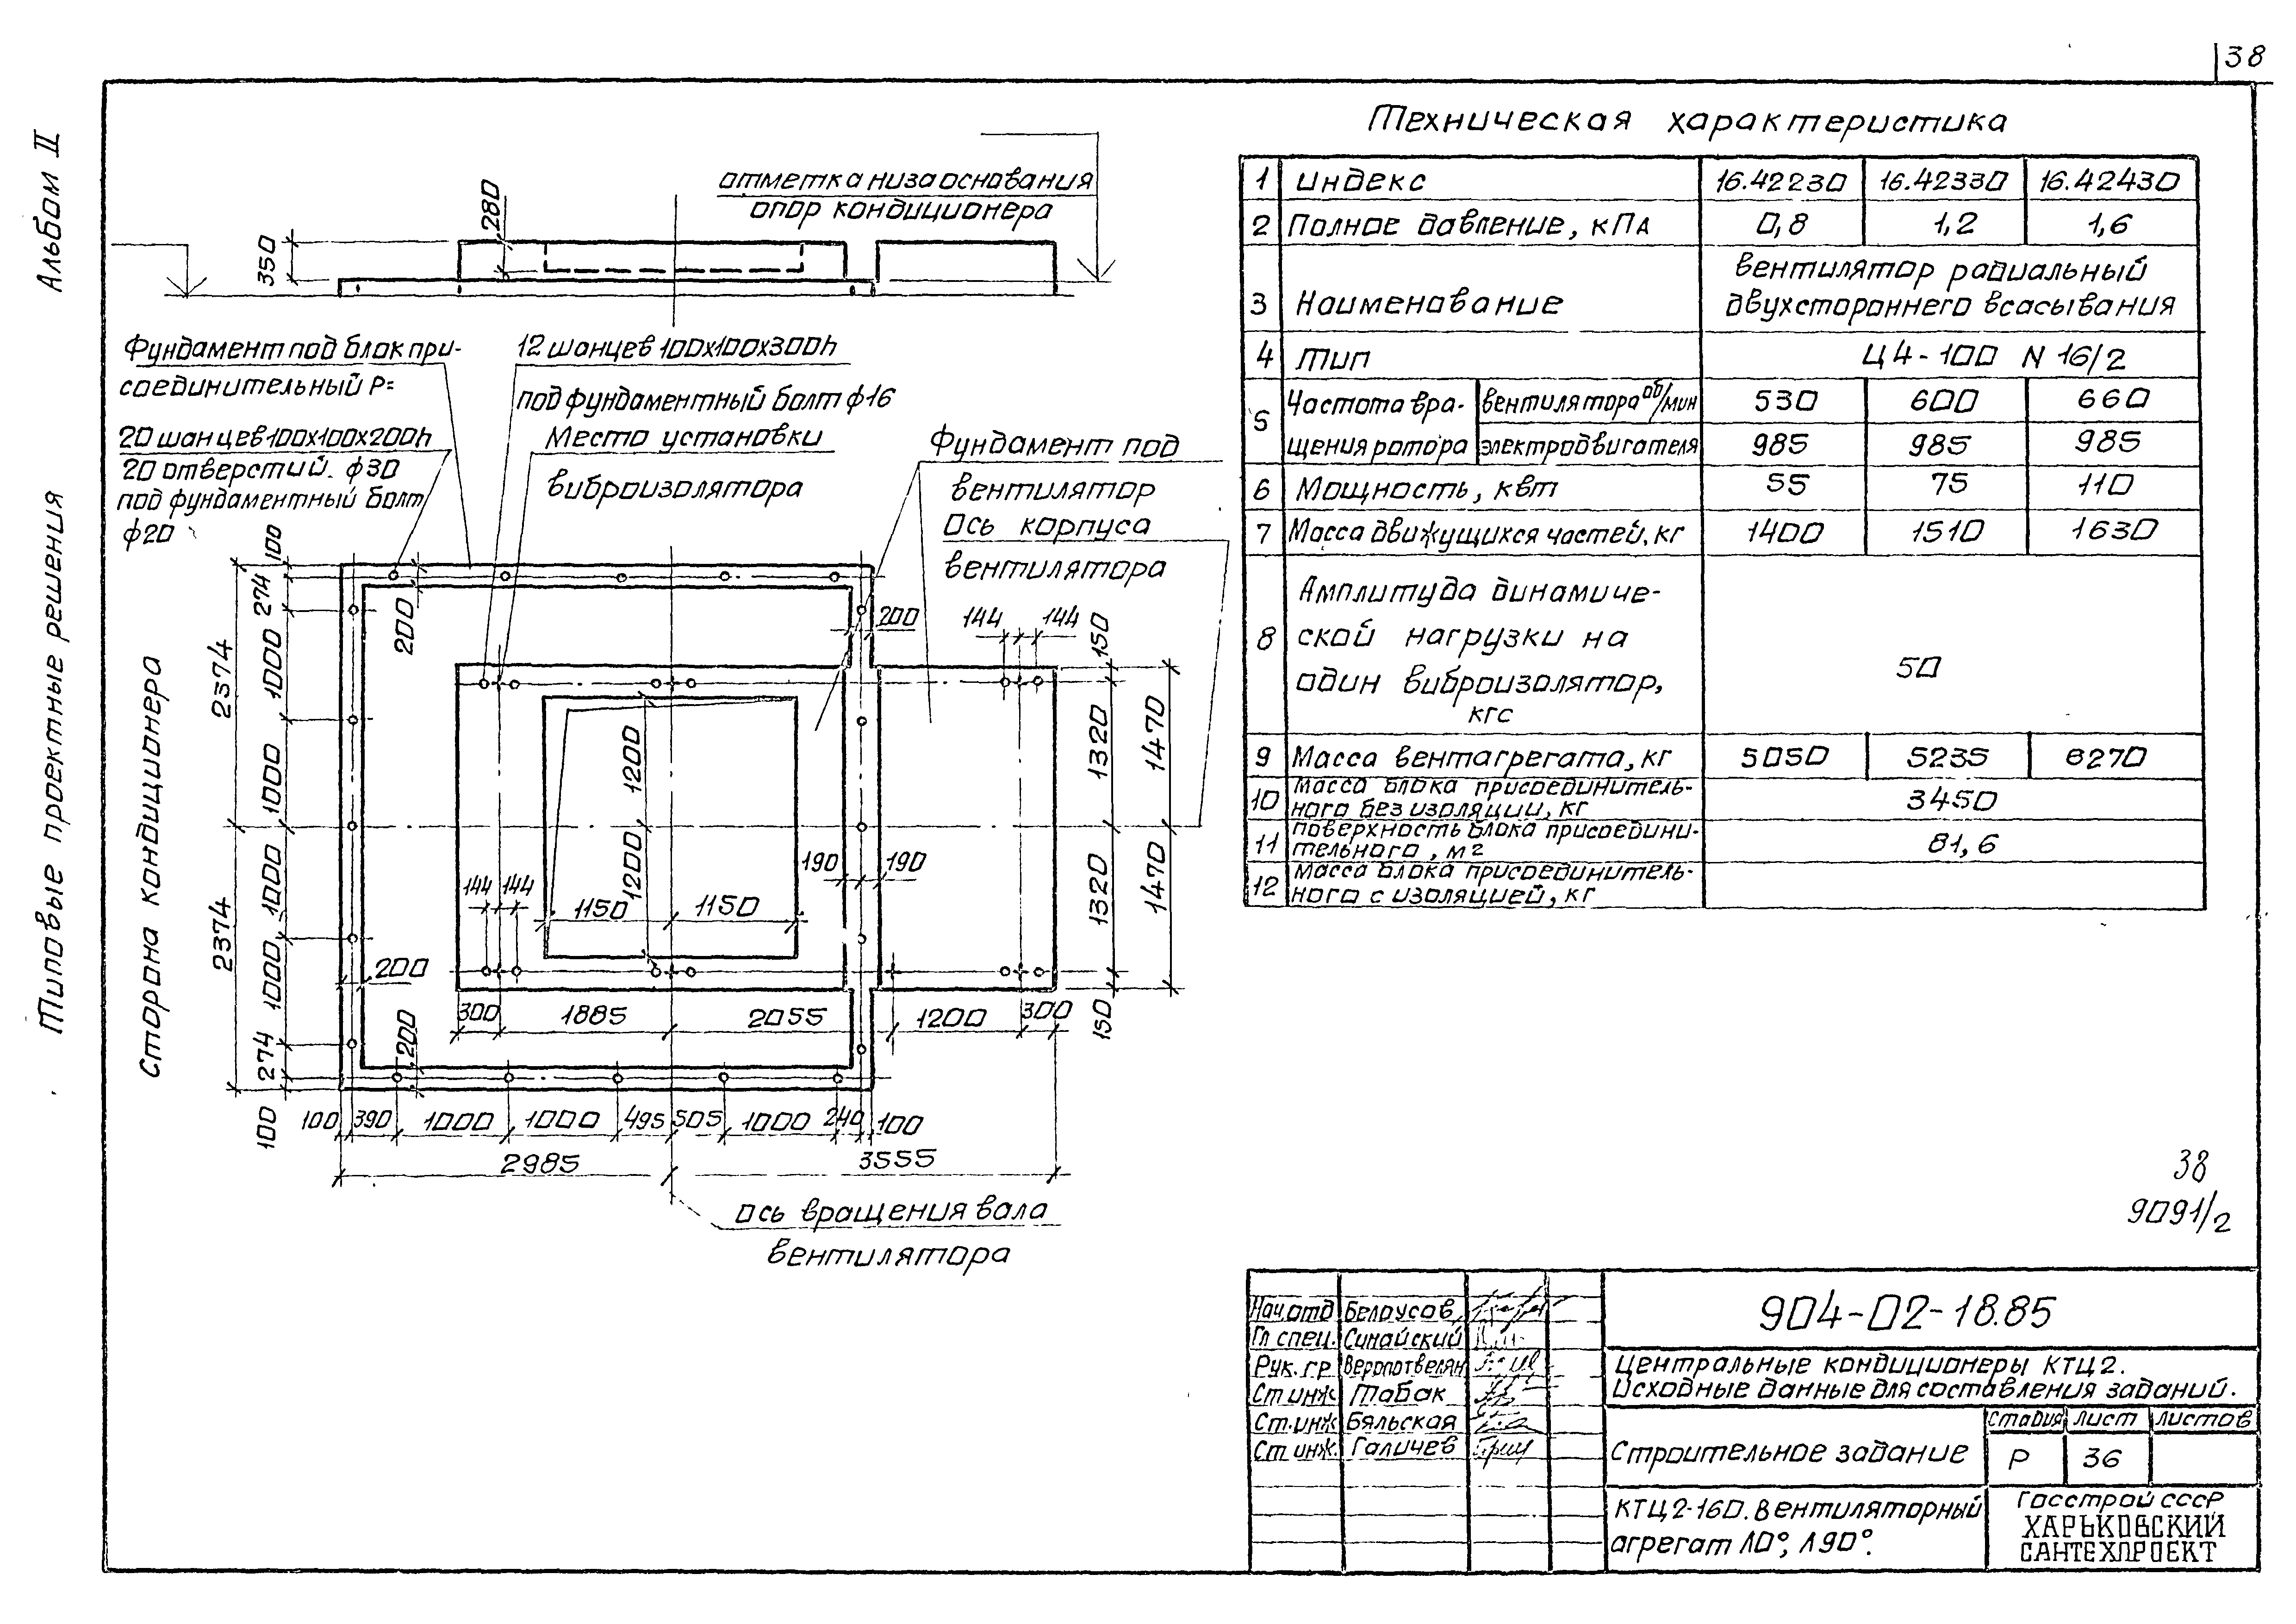 38
Альбом II
Типовые проектные решения
Сторона кондиционера
отметка низа основания
опор кондиционера
280
350
Фундамент под блок при-
соединительный Р=
20 шанцев 100х100х200h
20 отверстий. ф30
под фундаментный болт
ф20
12 шанцев 100х100х300h
под фундаментный болт ф16
Место установки
виброизолятора
Фундамент под
вентилятор
Ось корпуса
вентилятора
100
274
1000
1000
1000
1000
274
100
2374
2374
200
200
200
200
144
144
150
1320
1470
1320
1470
150
1200
1200
190
190
144
144
1150
1150
300
1885
2055
1200
300
100
390
1000
1000
495
505
1000
240
100
2985
3555
ось вращения вала
вентилятора
Техническая характеристика
1 индекс 16.42230 16.42330 16.42430
2 Полное давление, кПа 0,8 1,2 1,6
вентилятор радиальный
3 Наименование двухстороннего всасывания
4 тип Ц4-100 N 16/2
5 Частота вра- вентилятора об/мин 530 600 660
щения ротора электродвигателя 985 985 985
6 Мощность, квт 55 75 110
7 Масса движущихся частей, кг 1400 1510 1630
Амплитуда динамиче-
8 ской нагрузки на
один виброизолятор, 50
кгс
9 Масса вентагрегата, кг 5050 5235 6270
10 масса блока присоединитель-
ного без изоляции, кг 3450
11 поверхность блока присоедини-
тельного, м2 81,6
12 масса блока присоединитель-
ного с изоляцией, кг
38
9091/2
Нач.отд Белоусов
Гл спец. Синайский
Рук. гр Веропотвелян
Ст инж Табак
Ст.инж Бяльская
Ст инж. Галичев
904-02-18.85
Центральные кондиционеры КТЦ2.
Исходные данные для составления заданий.
Строительное задание
стадия лист листов
Р 36
КТЦ2-160. Вентиляторный
агрегат Л0°, Л90°.
Госстрой СССР
ХАРЬКОВСКИЙ
САНТЕХПРОЕКТ